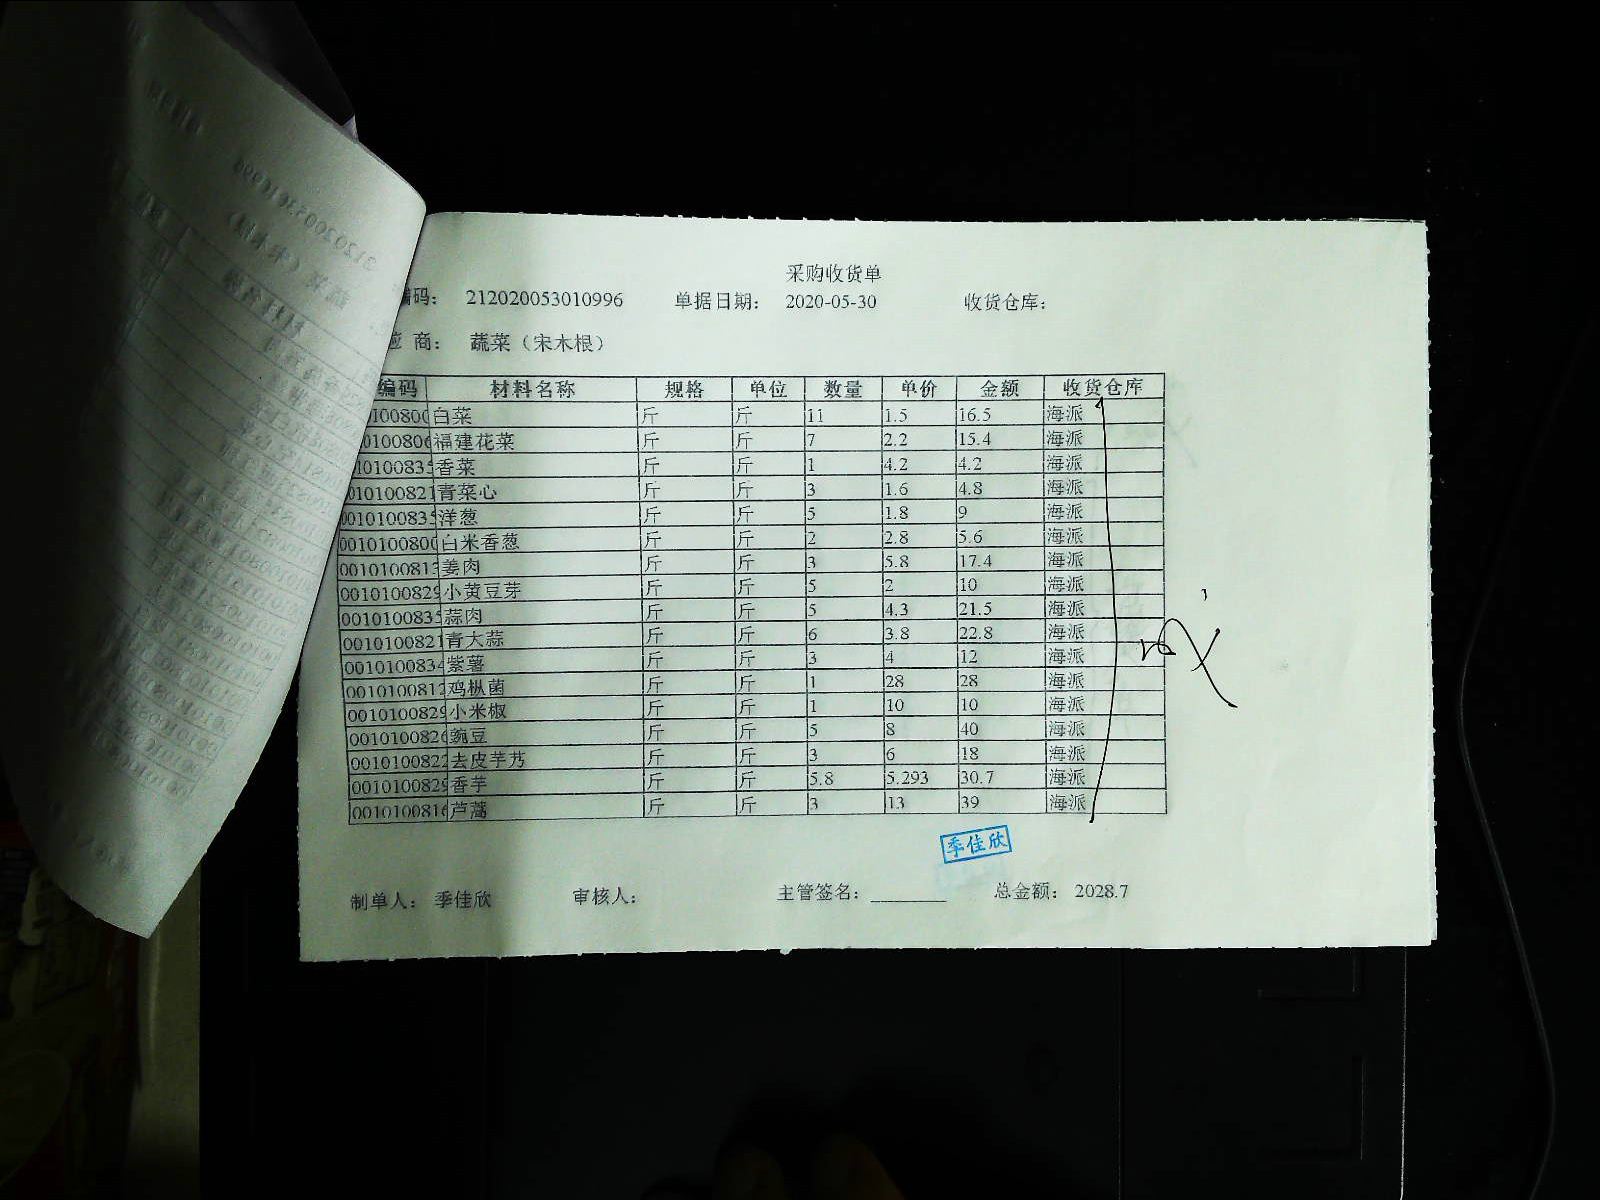 采购收货单
编码： 212020053010996 单据日期： 2020-05-30 收货仓库：
应 商： 蔬菜（宋木根）
编码 材料名称 规格 单位 数量 单价 金额 收货仓库
100800 白菜 斤 斤 11 1.5 16.5 海派
0100806 福建花菜 斤 斤 7 2.2 15.4 海派
10100835 香菜 斤 斤 1 4.2 4.2 海派
010100821 青菜心 斤 斤 3 1.6 4.8 海派
0010100835 洋葱 斤 斤 5 1.8 9 海派
0010100800 白米香葱 斤 斤 2 2.8 5.6 海派
0010100813 姜肉 斤 斤 3 5.8 17.4 海派
0010100829 小黄豆芽 斤 斤 5 2 10 海派
0010100835 蒜肉 斤 斤 5 4.3 21.5 海派
0010100821 青大蒜 斤 斤 6 3.8 22.8 海派
0010100834 紫薯 斤 斤 3 4 12 海派
0010100812 鸡枞菌 斤 斤 1 28 28 海派
0010100829 小米椒 斤 斤 1 10 10 海派
0010100826 豌豆 斤 斤 5 8 40 海派
0010100822 去皮芋艿 斤 斤 3 6 18 海派
0010100829 香芋 斤 斤 5.8 5.293 30.7 海派
0010100816 芦蒿 斤 斤 3 13 39 海派
季佳欣
制单人： 季佳欣 审核人： 主管签名： 总金额： 2028.7